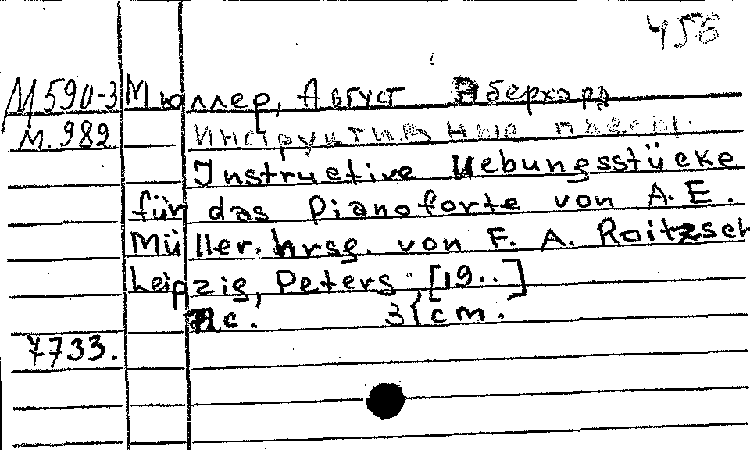 456
М590-3 Мюллер, Август Эберхард
М.989 Инструктивные пьесы.
Instructive Uebungsstücke
für das Pianoforte von A. E.
Müller. hrsg. von F. A. Roitzsch
Leipzig, Peters, [19..]
с. 31 cm.
7733.